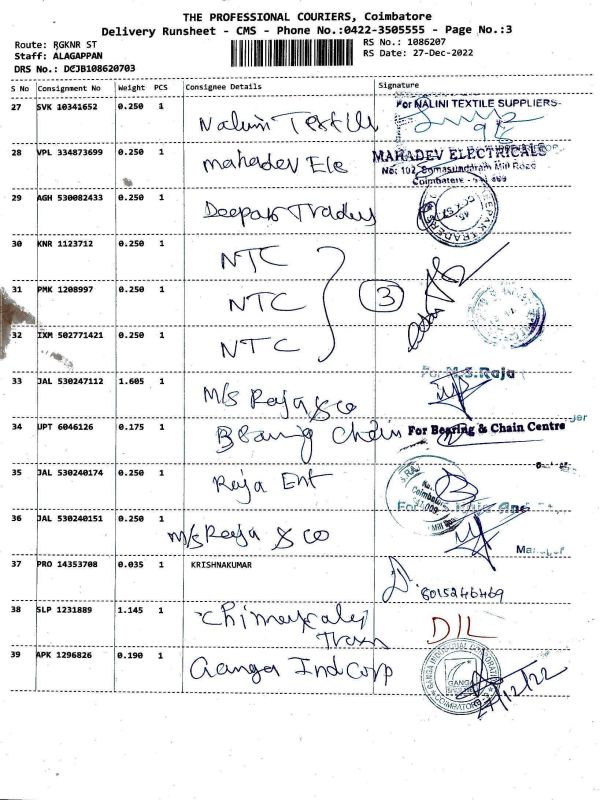 THE PROFESSIONAL COURIERS, Coimbatore
Delivery Runsheet - CMS - Phone No.:0422-3505555 - Page No.:3
Route: RGKNR ST
RS No.: 1086207
Staff: ALAGAPPAN
RS Date: 27-Dec-2022
DRS No.: DCJB108620703
S No Consignment No Weight PCS Consignee Details Signature
27 SVK 10341652 0.250 1 Nalini Textile For NALINI TEXTILE SUPPLIERS
28 VPL 334873699 0.250 1 Mahadev Ele MAHADEV ELECTRICALS
No: 102, Somasundaram Mill Road
Coimbatore - 641 009
29 AGH 530082433 0.250 1 Deepak Traders DEEPAK TRADERS
30 KNR 1123712 0.250 1 NTC
31 PMK 1208997 0.250 1 NTC 3
32 IXM 502771421 0.250 1 NTC
For M.S.Raja
33 JAL 530247112 1.605 1 M/s Raja & Co
34 UPT 6046126 0.175 1 Bearing Chain For Bearing & Chain Centre
35 JAL 530240174 0.250 1 Raja Ent
Coimbatore
36 JAL 530240151 0.250 1 M/s Raja & Co
Manager
37 PRO 14353708 0.035 1 KRISHNAKUMAR 8015246469
38 SLP 1231889 1.145 1 D/L
39 APK 1296826 0.190 1 Ganga Ind Corp GANGA INDUSTRIAL CORPORATION
GANGA
COIMBATORE
27/12/22